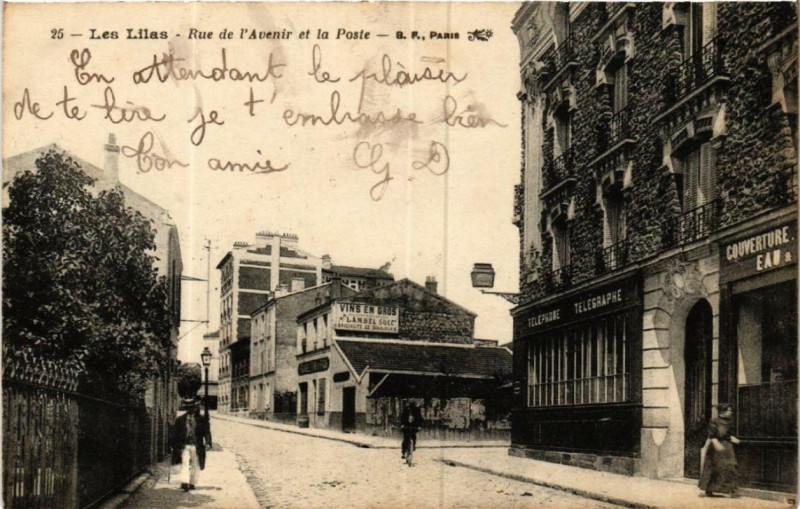 25 - Les Lilas - Rue de l'Avenir et la Poste - B. F., PARIS
En attendant le plaisir
de te lire je t'embrasse bien
Ton amie G D
VINS EN GROS
COUVERTURE.
EAU
TELEPHONE TELEGRAPHE